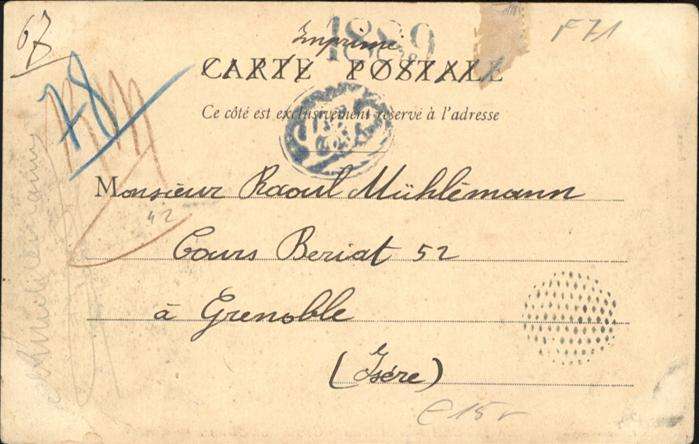 67
1889
F71
Imprimé
CARTE POSTALE
78
Ce côté est exclusivement reservé à l'adresse
Monsieur Raoul Mühlémann
42
Cours Beriat 52
à Grenoble
(Isére)